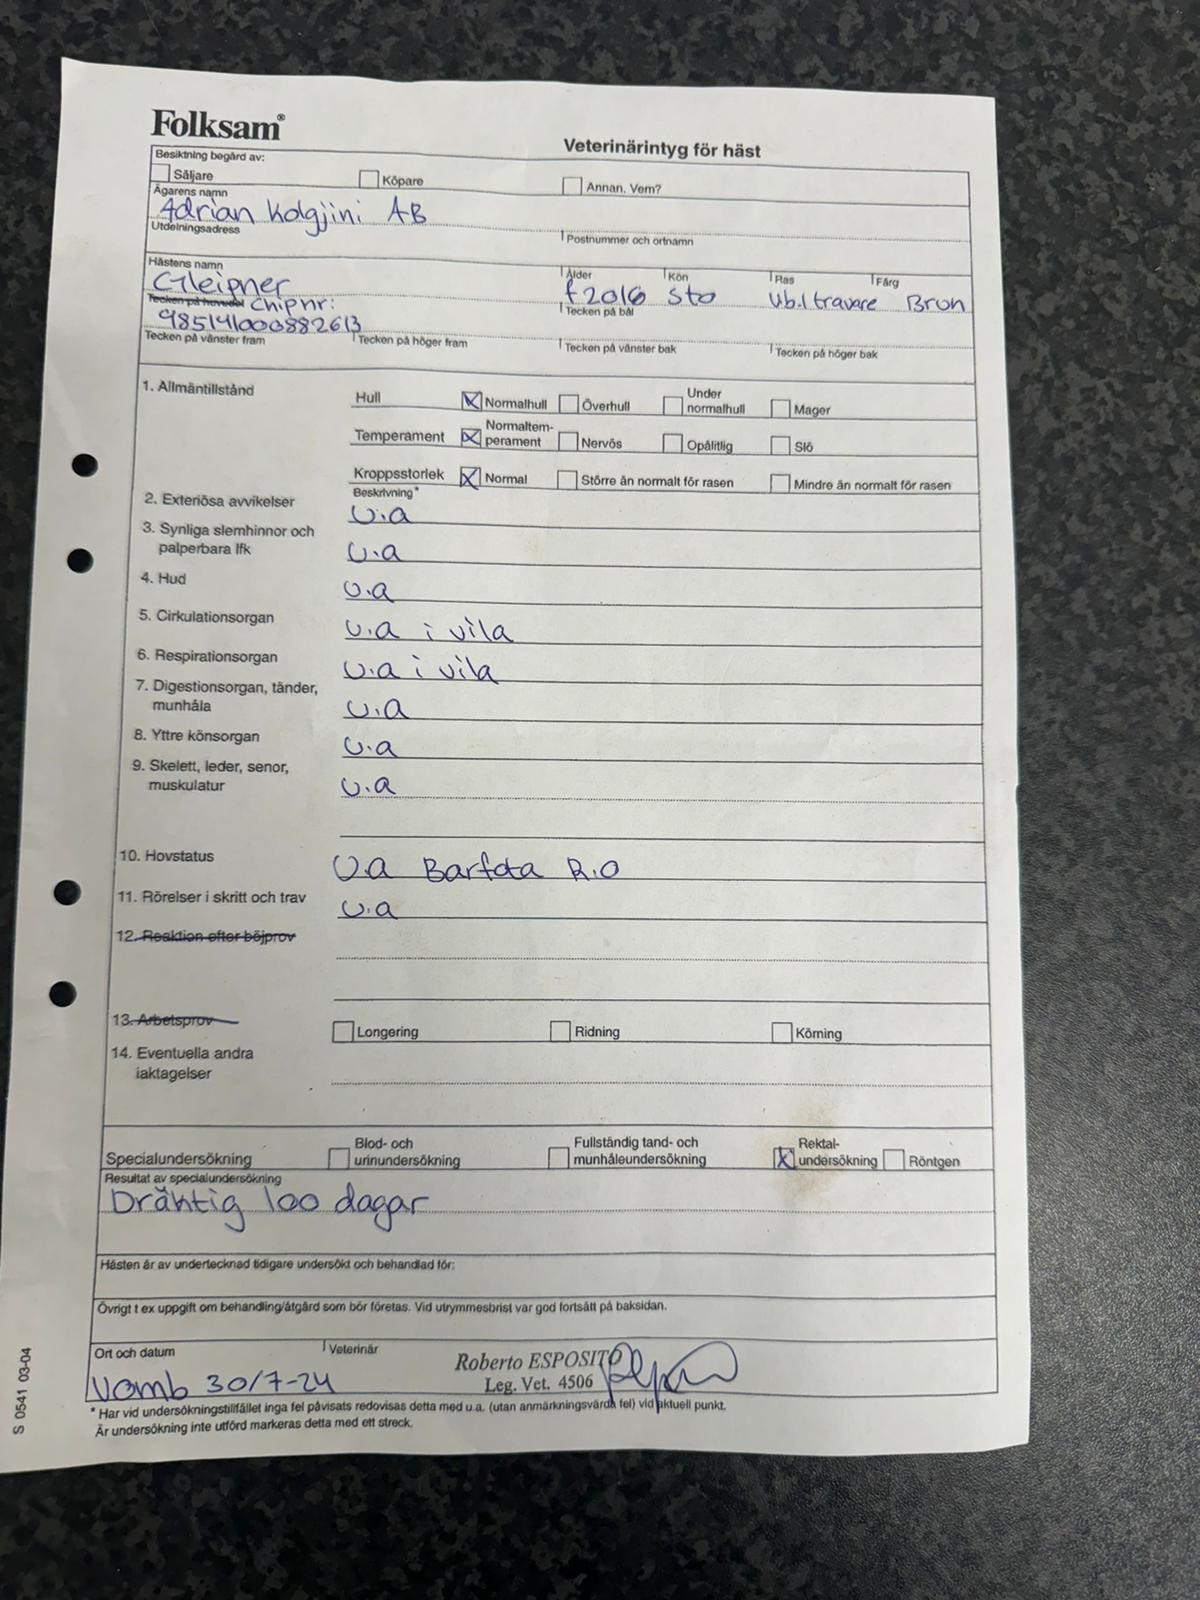 Folksam®
Veterinärintyg för häst
Besiktning begärd av:
Säljare Köpare Annan. Vem?
Ägarens namn
Adrian Kolgjini AB
Utdelningsadress Postnummer och ortnamn
Hästens namn Ålder Kön Ras Färg
Gleipner f2016 Sto vb.l travare Brun
Tecken på huvudet Chipnr: Tecken på bål
985141000882613
Tecken på vänster fram Tecken på höger fram Tecken på vänster bak Tecken på höger bak
1. Allmäntillstånd
Hull Normalhull Överhull Under normalhull Mager
Temperament Normaltem-perament Nervös Opålitlig Slö
Kroppsstorlek Normal Större än normalt för rasen Mindre än normalt för rasen
Beskrivning*
2. Exteriösa avvikelser u.a
3. Synliga slemhinnor och
palperbara lfk u.a
4. Hud u.a
5. Cirkulationsorgan u.a i vila
6. Respirationsorgan u.a i vila
7. Digestionsorgan, tänder,
munhåla u.a
8. Yttre könsorgan u.a
9. Skelett, leder, senor,
muskulatur u.a
10. Hovstatus U.a Barfota R.O
11. Rörelser i skritt och trav u.a
12. Reaktion efter böjprov
13. Arbetsprov Longering Ridning Körning
14. Eventuella andra
iaktagelser
Specialundersökning Blod- och urinundersökning Fullständig tand- och munhåleundersökning Rektal-undersökning Röntgen
Resultat av specialundersökning
Dräktig 100 dagar
Hästen är av undertecknad tidigare undersökt och behandlad för:
Övrigt t ex uppgift om behandling/åtgärd som bör företas. Vid utrymmesbrist var god fortsätt på baksidan.
Ort och datum Veterinär
Vomb 30/7-24 Roberto ESPOSITO
Leg. Vet. 4506
* Har vid undersökningstillfället inga fel påvisats redovisas detta med u.a. (utan anmärkningsvärda fel) vid aktuell punkt.
Är undersökning inte utförd markeras detta med ett streck.
S 0541 03-04